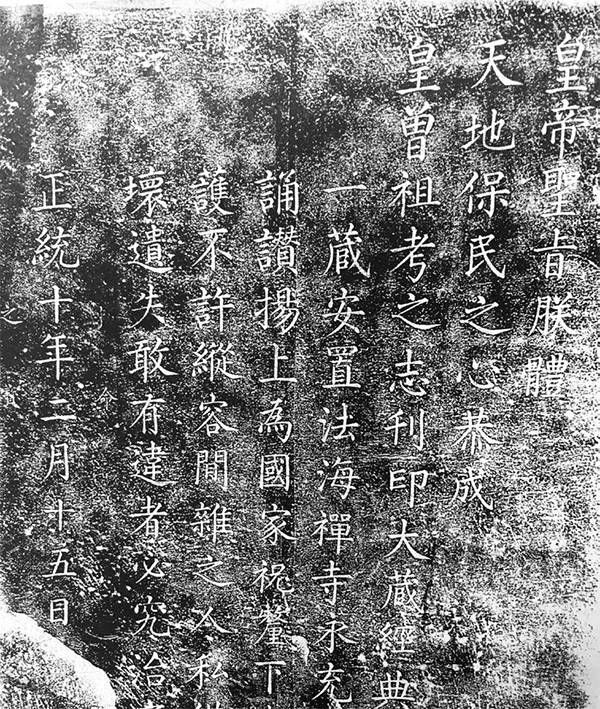 皇帝聖旨朕體
天地保民之心恭成
皇曾祖考之志刊印大藏經典
一藏安置法海禪寺永充
誦讃揚上為國家祝釐下
護不許縱容閒雜之人私
壞遺失敢有違者必究治
正統十年二月十五日